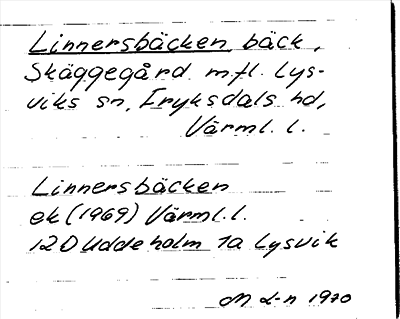 Linnersbäcken bäck,
Skäggegård m.fl. Lys-
viks sn, Fryksdals hd,
Värml. l.
Linnersbäcken
ek (1969) Värml. l.
12D Uddeholm 1a Lysvik
M L-n 1970